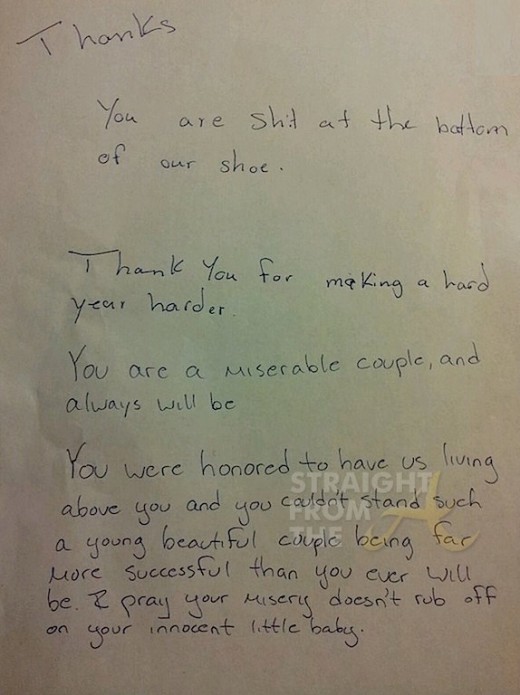 Thanks
You are shit at the bottom
of our shoe.
Thank You for making a hard
year harder.
You are a miserable couple, and
always will be
You were honored to have us living
above you and you couldn't stand such
a young beautiful couple being far
more successful than you ever will
be. I pray your misery doesn't rub off
on your innocent little baby.
STRAIGHT
FROM
THE A